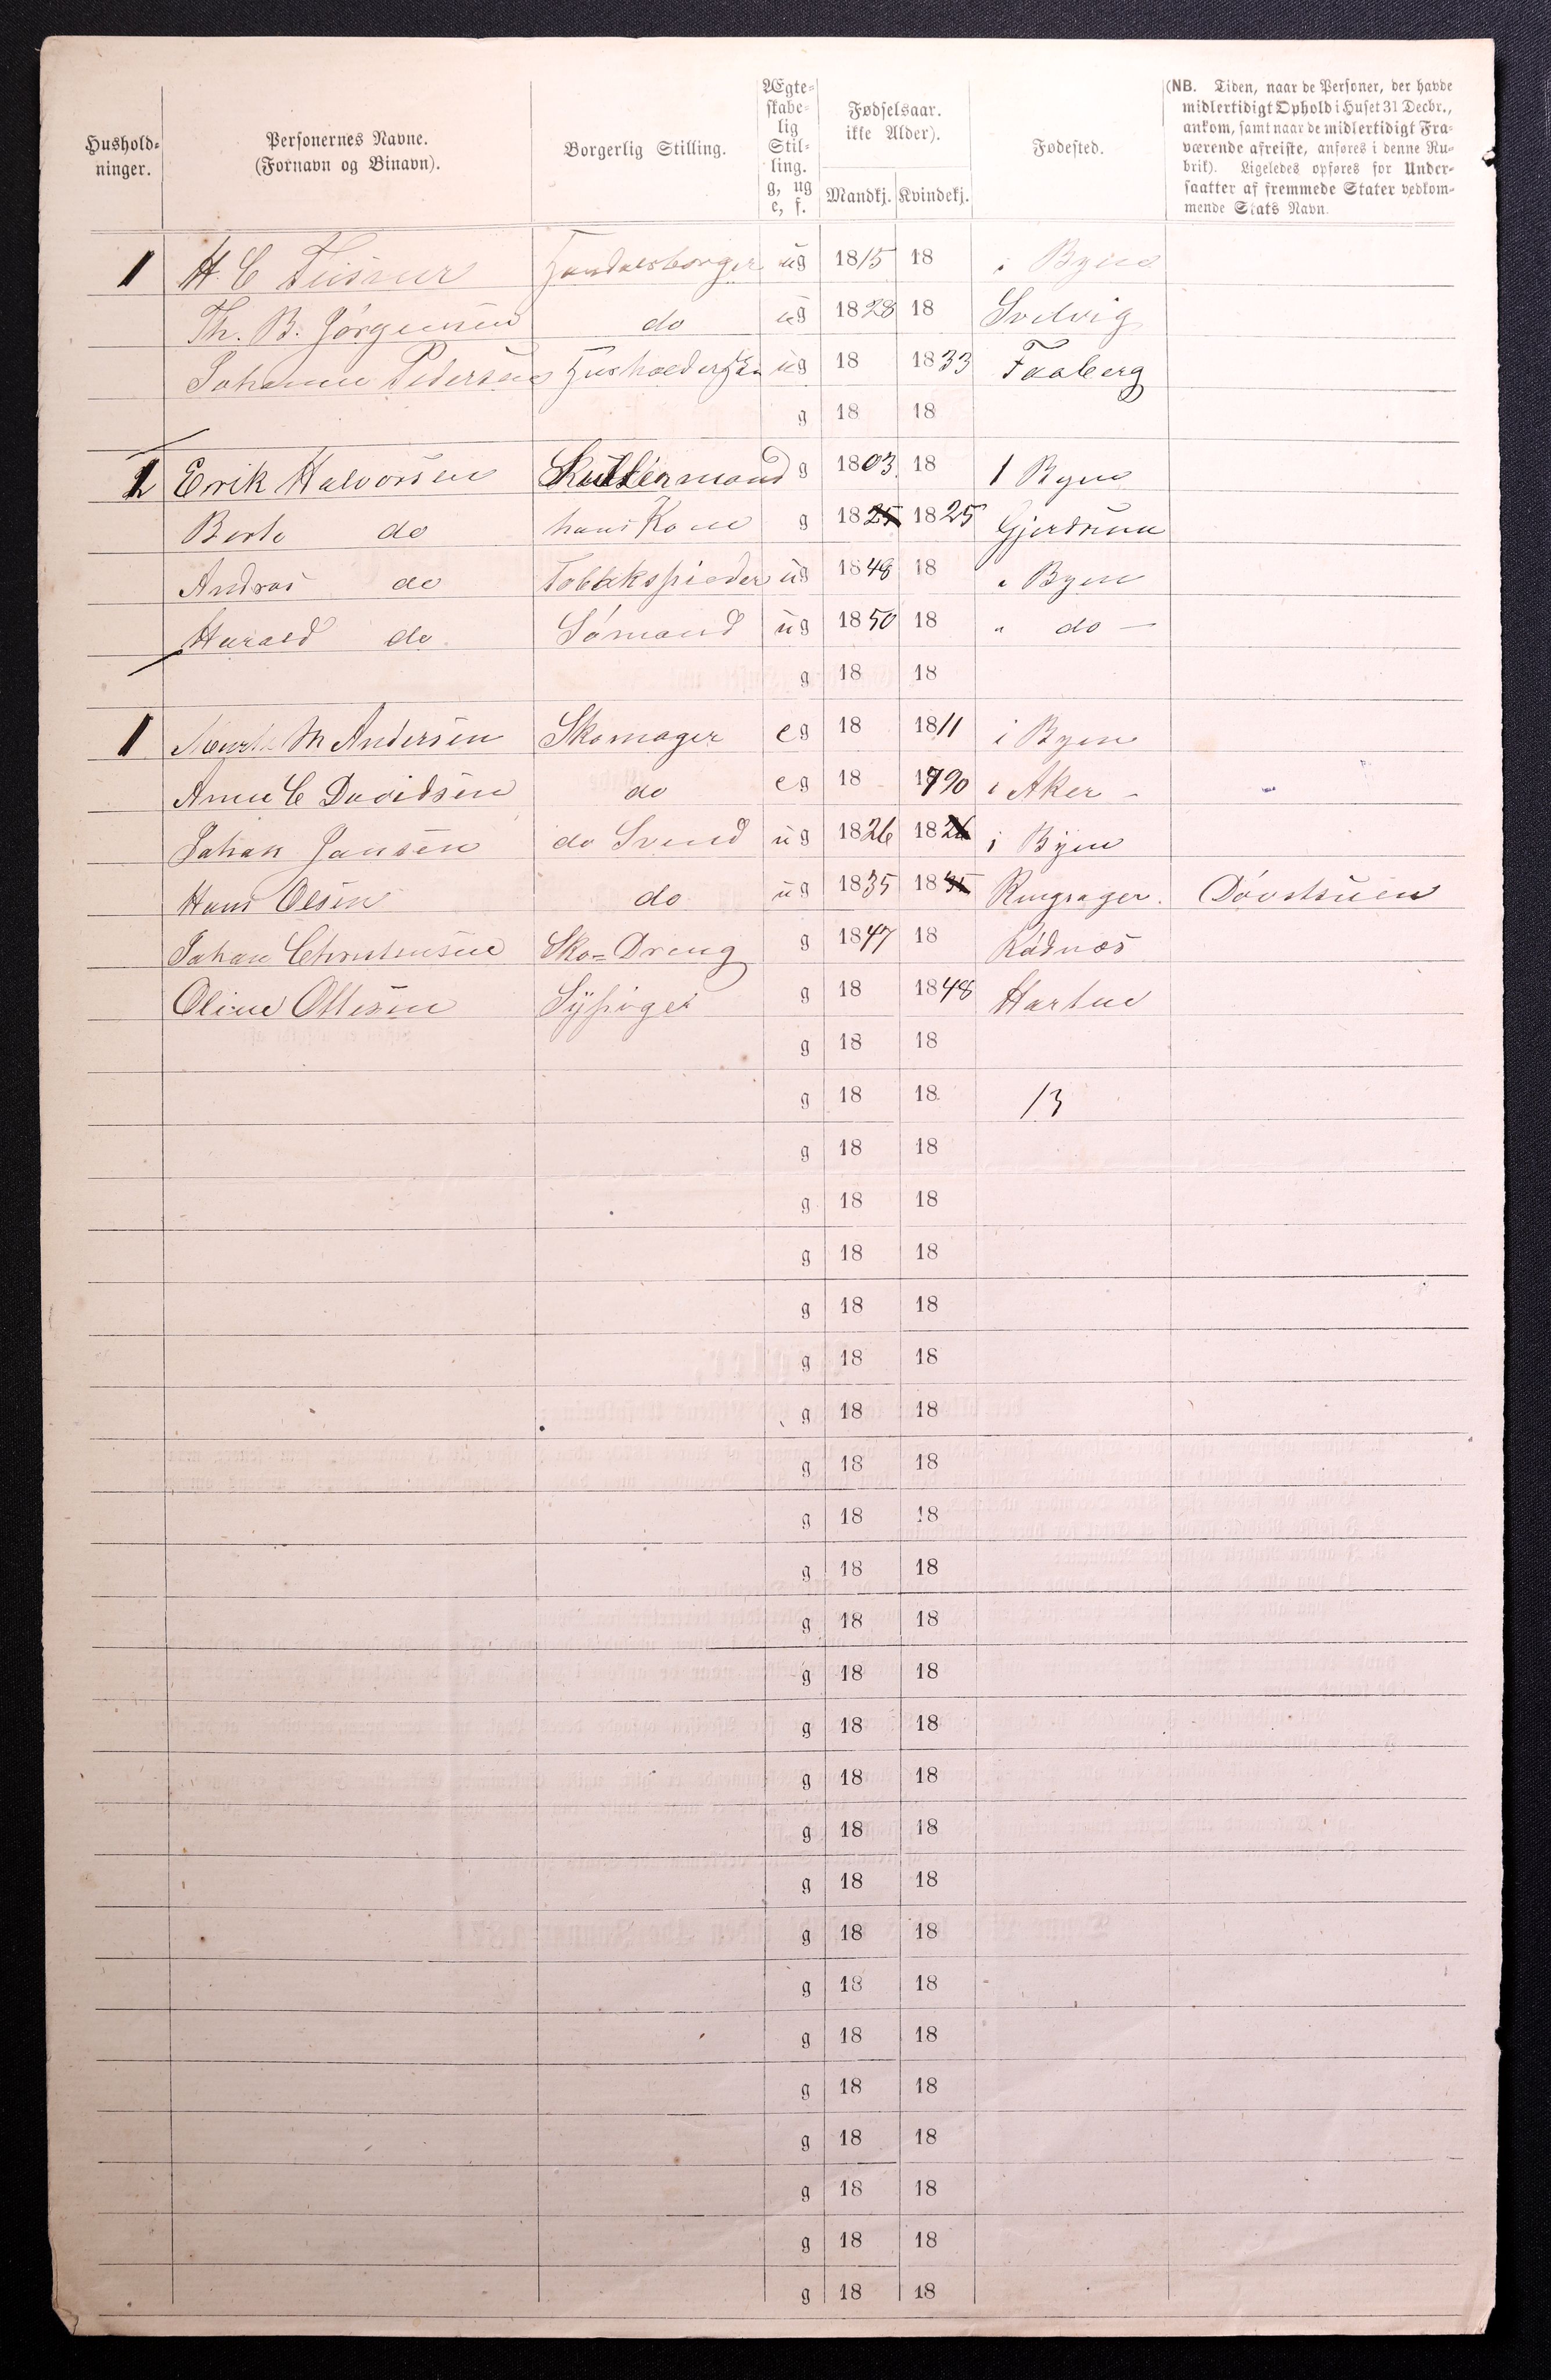 Hushold-
ninger.
Personernes Navne.
(Fornavn og Binavn).
Borgerlig Stilling.
Ægte-
skabe-
lig
Stil-
ling.
g, ug
e, f.
Fødselsaar.
ikke Alder).
Mandkj. Kvindekj.
Fødested.
(NB. Tiden, naar de Personer, der havde
midlertidigt Ophold i Huset 31 Decbr.,
ankom, samt naar de midlertidigt Fra-
værende afreiste, anføres i denne Ru-
brik). Ligeledes opføres for Under-
saatter af fremmede Stater vedkom-
mende Stats Navn.
1 H. C. Handelsborger ug 1815 18 i Byen
Th. B. Jørgensen do ug 1828 18 Svelvig
Johanne Pedersen ug 18 1833 Faaberg
g 18 18
2 Erik Halvorsen g 1803 18 I Byen
Berte do hans Kone g 1825 1825 Gjerdrum
Andras do ug 1848 18 " Byen
Harald do Sømand ug 1850 18 " do —
g 18 18
1 M Andersen Skomager eg 18 1811 i Byen
Anne C Davidsen do eg 18 1790 i Aker -
Johan Jansen do Svend ug 1826 1826 i Byen
Hans Olsen do ug 1835 1835 Ringsager.
Johan Christensen Sko=Dreng g 1847 18 Rødnæs
Oline Ottesen Sypige g 18 1848
g 18 18
g 18 18 13
g 18 18
g 18 18
g 18 18
g 18 18
g 18 18
g 18 18
g 18 18
g 18 18
g 18 18
g 18 18
g 18 18
g 18 18
g 18 18
g 18 18
g 18 18
g 18 18
g 18 18
g 18 18
g 18 18
g 18 18
g 18 18
g 18 18
g 18 18